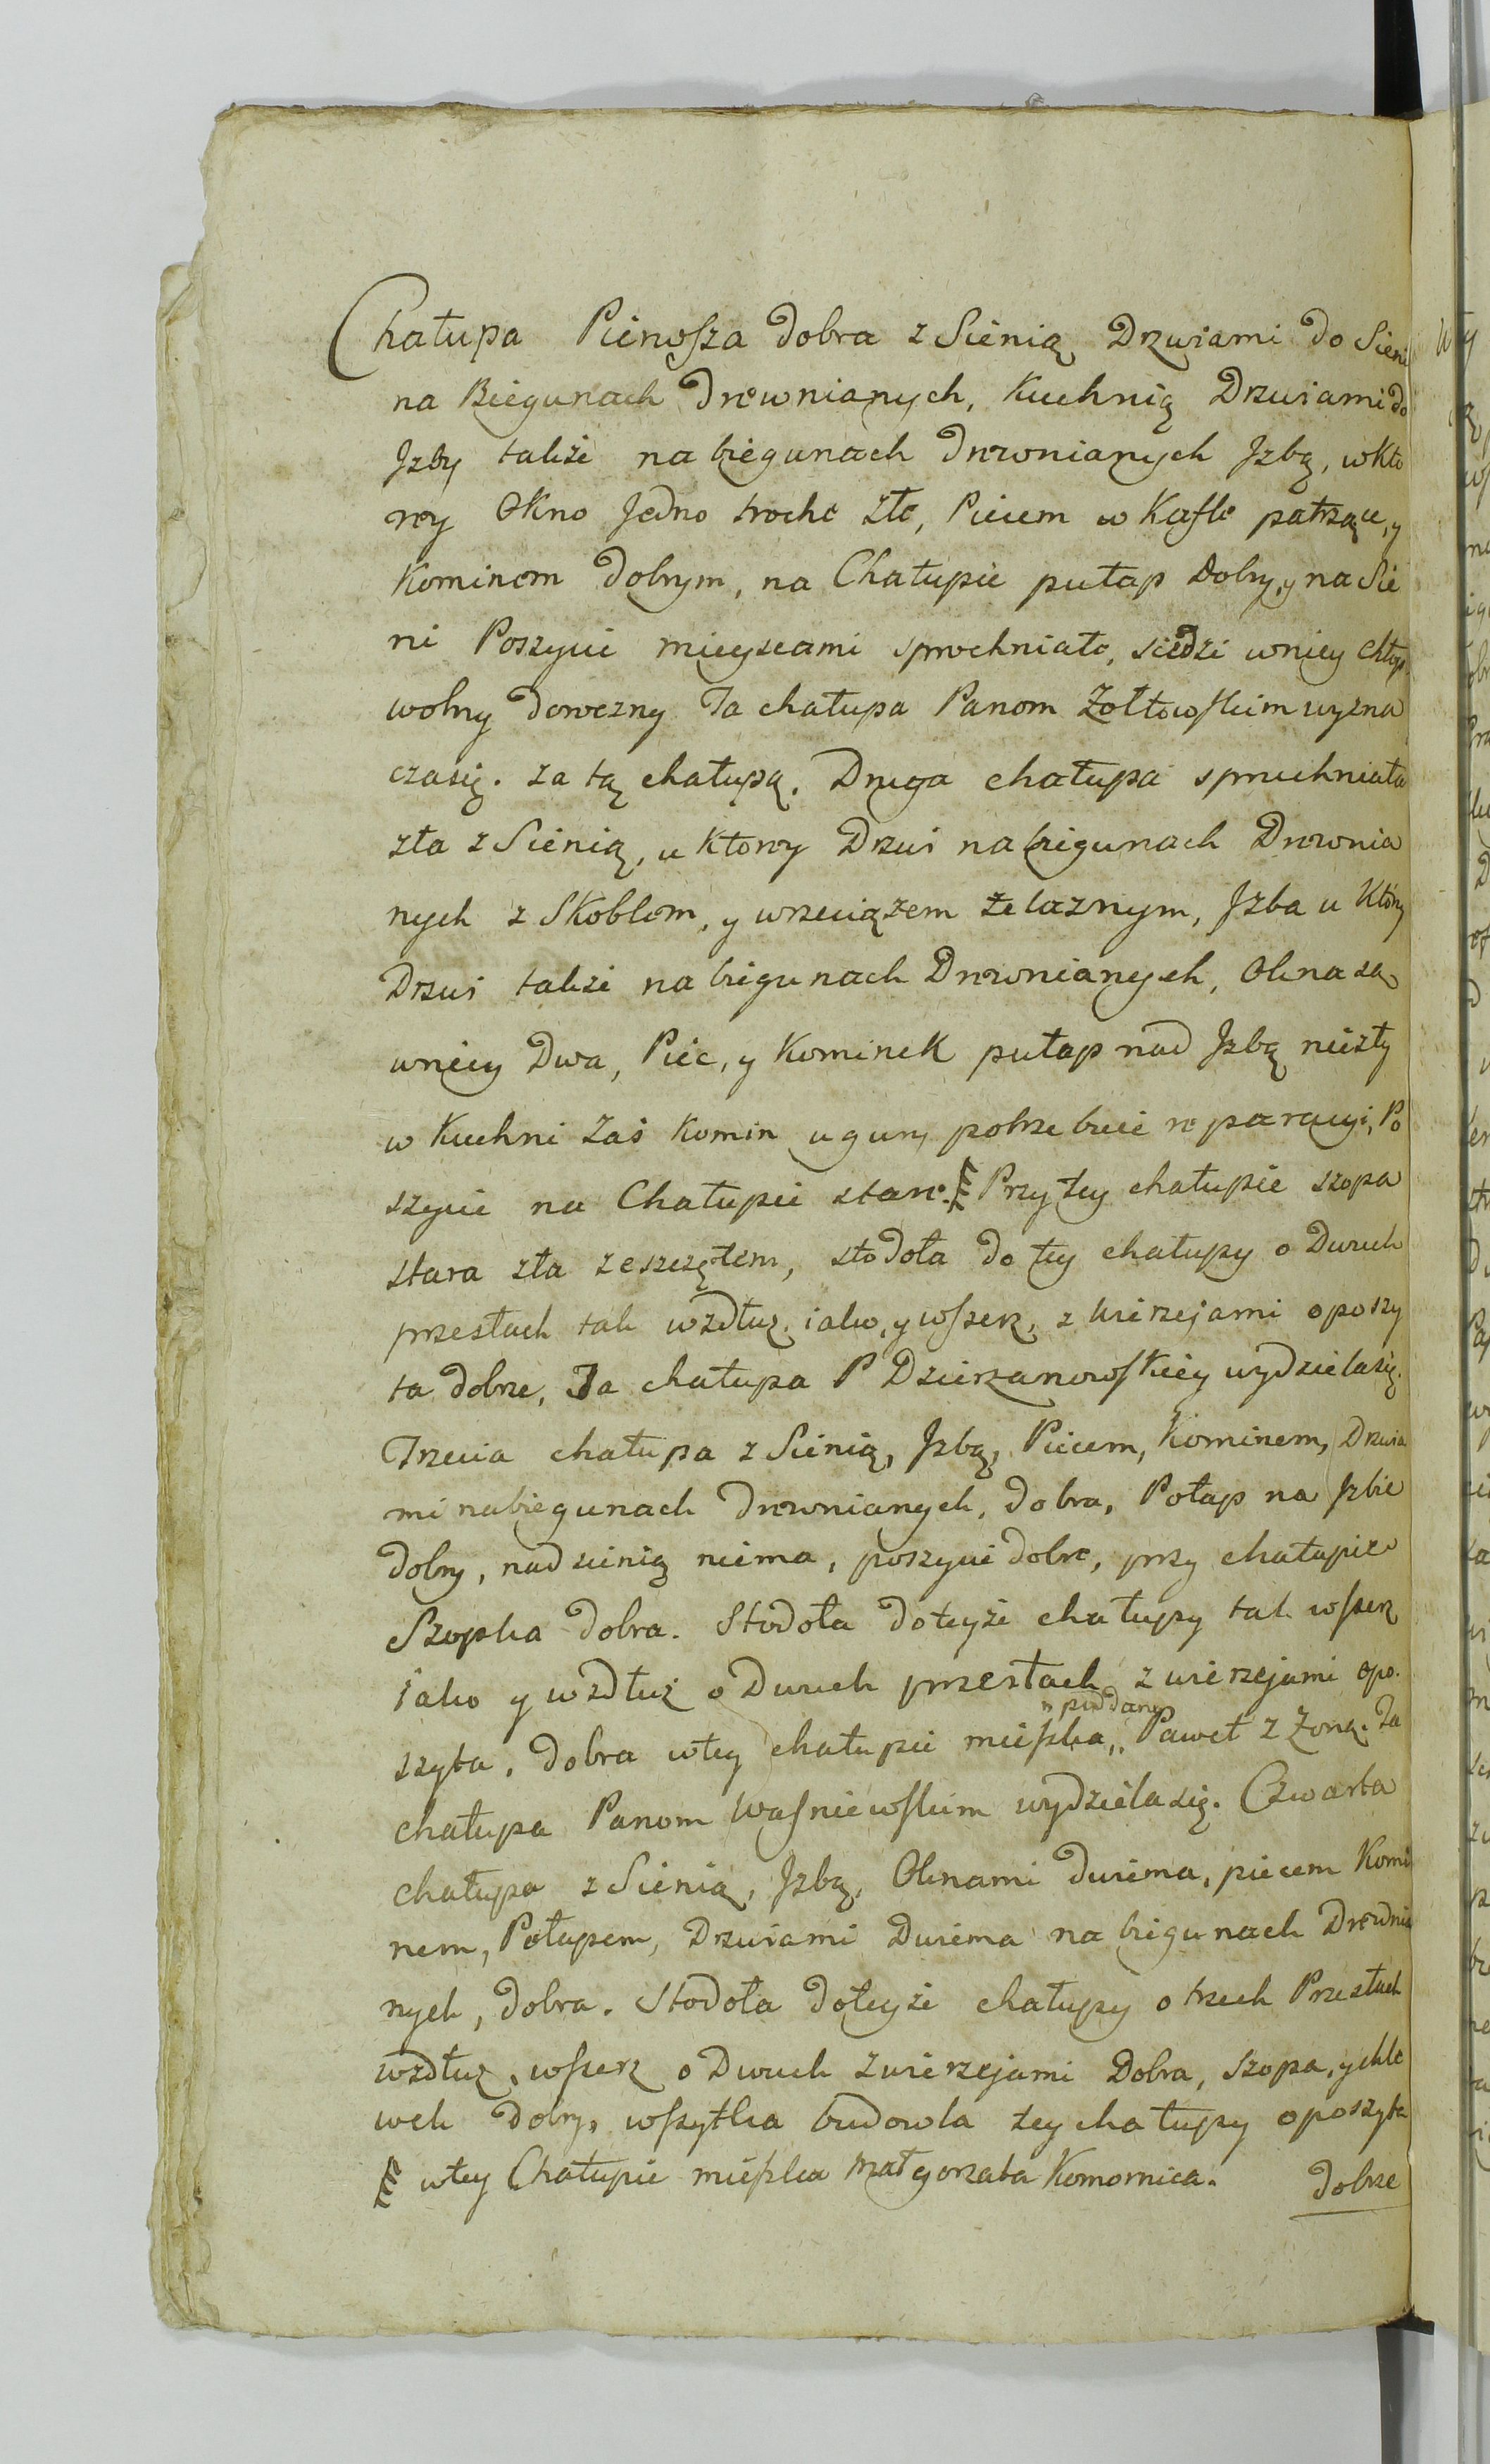 Chałupa Pierwsza dobra z Sienią Drzwiami do Sieni
na Biegunach drewnianych, Kuchnią Drzwiami do
Jzby takze na biegunach drewnianych Jzbą, w Kto
rey Okno Jedno troche złe, Piecem w Kafle patrzące, y
Kominem dobrym, na Chałupie pułap Dobry, y na Sie
ni Poszycie mieyscami sprochniałe, siedzi wniey chłop
wolny doroczny Ta chałupa Panom Zołtowskim wyzna
czasię. za tą chałupą. Druga chałupa spruchniała
zła z Sienią, u Ktory Drzwi na biegunach Drewnia
nych z Skoblem, y wrzeciązem zelaznym, Jzba u Który
Drzwi takze na biegunach Drewnianych, Okna są
wniey Dwa, Piec, y Kominek pułap nad Jzbą niezły
w Kuchni Zaś Komin ugury potrzebuie reparacyi, Po
szycie na Chałupie stare. Przy tey chałupie szopa
stara zła zeszczętem, stodoła do tey chałupy o Dwuch
przesłach tak wzdłuz, iako, y wszerz, z wierzejami oposzy
ta dobrze, Ta chałupa P Dzierzanowskiey wydzielasię.
Trzecia chałupa z Sienią, Jzbą, Piecem, Kominem, Drzwia
mi nabiegunach drewnianych, dobra, Połap na Jzbie
dobry, nad sienią niema, poszycie dobre, przy chałupie
Szopka dobra. Stodoła doteyze chałupy tak wszerz
iako y wzdłuz o Dwuch przesłach z wierzejami opo.
szyta, dobra wtey chałupie mieszka poddany Paweł z Zoną. Ta
chałupa Panom Wasniewskim wydzielasię. Czwarta
chałupa z Sienią, Jzbą, Oknami dwiema, piecem Komi
nem, Połapem, Drzwiami Dwiema na biegunach Drewnia
nych, dobra. Stodoła doteyze chałupy o trzech Przesłach
wzdłuz, wszerz o Dwuch z wierzejami Dobra, szopa, y chle
wek dobry, wszytka budowla tey chałupy oposzyta
wtey Chałupie mieszka Małgorzata Komornica. dobrze